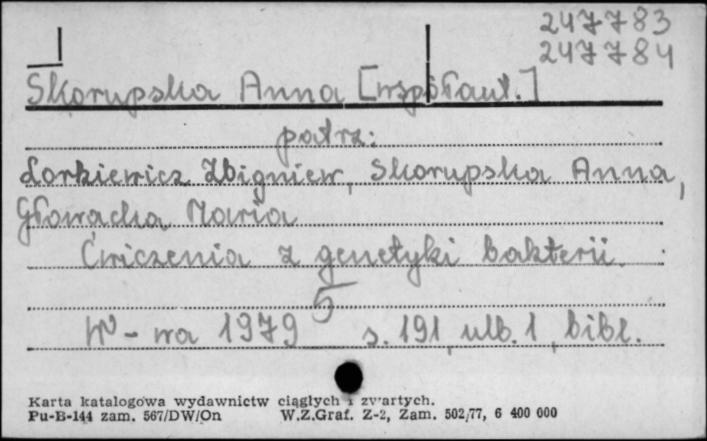 247783
247784
Skorupska Anna [współaut.]
patrz:
Lorkiewicz Zbigniew, Skorupska Anna,
Głowacka Maria
Ćwiczenia z genetyki bakterii.
5
W-wa 1979 s. 191, ulb. 1, bibl.
Karta katalogowa wydawnictw ciągłych i zwartych.
Pu-B-144 zam. 567/DW/On W.Z.Graf. Z-2, Zam. 502/77, 6 400 000